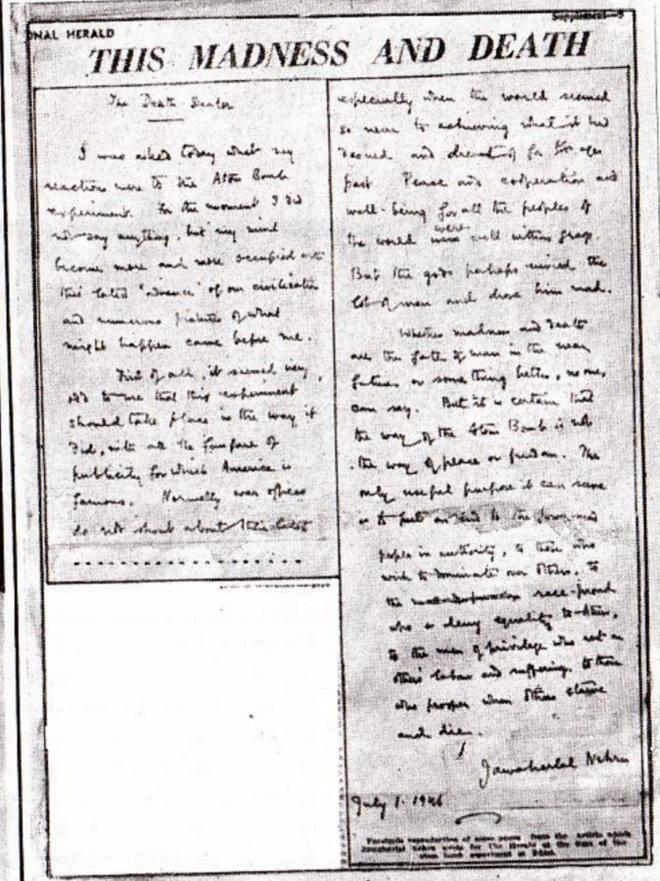 ONAL HERALD
Supplement—
THIS MADNESS AND DEATH
The Death Dealer
I was asked today what my
reactions were to the Atom Bomb
experiment. For the moment I did
not say anything, but my mind
became more and more occupied with
this latest "advance" of our civilization
and numerous pictures of what
might happen came before me.
First of all, it seemed very
odd to me that this experiment
should take place in the way it
did, with all the fanfare of
publicity for which America is
famous. Normally war offices
do not shout about their latest
especially when the world seemed
so near to achieving what it had
desired and dreamed of for ages
past. Peace and cooperation and
well-being for all the peoples of
the world were well within grasp.
But the gods perhaps envied the
lot of man and drove him mad.
Whether madness and death
are the fate of man in the near
future or something better, no one
can say. But it is certain that
the way of the Atom Bomb is not
the way of peace or freedom. The
only useful purpose it can serve
is to put an end to the
people in authority, to those who
wish to dominate over others, to
the race-proud
who deny equality to others,
to the men of privilege who rest on
others' labour and suffering, to those
who prosper when others starve
and die.
Jawaharlal Nehru
July 1. 1946
Facsimile reproduction of some pages from the article which
Jawaharlal Nehru wrote for The Herald at the time of the
atom bomb experiment at Bikini.